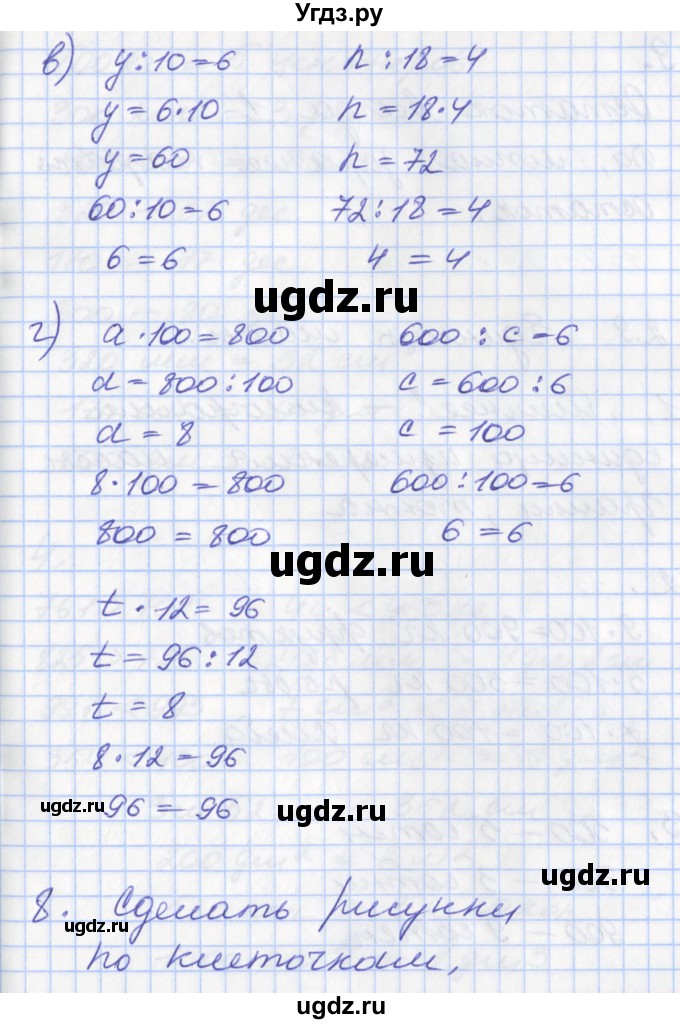 Угдз.ру
в) y : 10 = 6     n : 18 = 4
y = 6 · 10     n = 18 · 4
y = 60     n = 72
60 : 10 = 6     72 : 18 = 4
6 = 6     4 = 4
ugdz.ru
г) a · 100 = 800     600 : c = 6
a = 800 : 100     c = 600 : 6
a = 8     c = 100
8 · 100 = 800     600 : 100 = 6
800 = 800     6 = 6
ugdz.ru
t · 12 = 96
t = 96 : 12
t = 8
8 · 12 = 96
ugdz.ru     96 = 96     ugdz.ru
ugdz.ru
8. Сделать рисунки
ugdz.ru
по клеточкам,
ugdz.ru